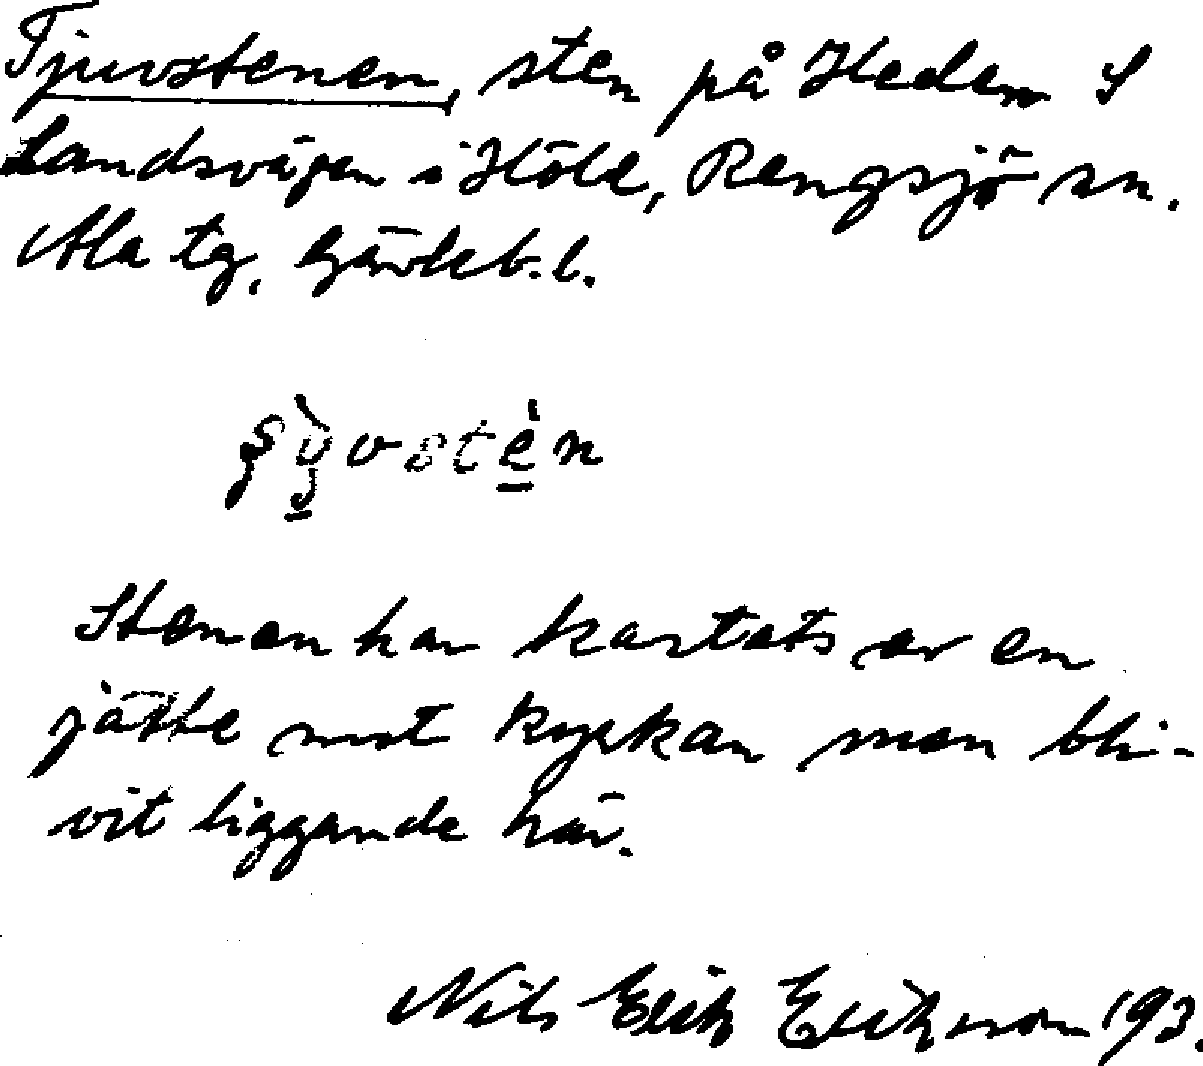 Tjuvstenen, sten på Heden S
Landsvägen i Höle, Rengsjö sn.
Ala tg, Gävleb. l.
Stenen har kastats av en
jätte mot kyrkan men bli-
vit liggande här.
Nils Erik Eriksson 193.